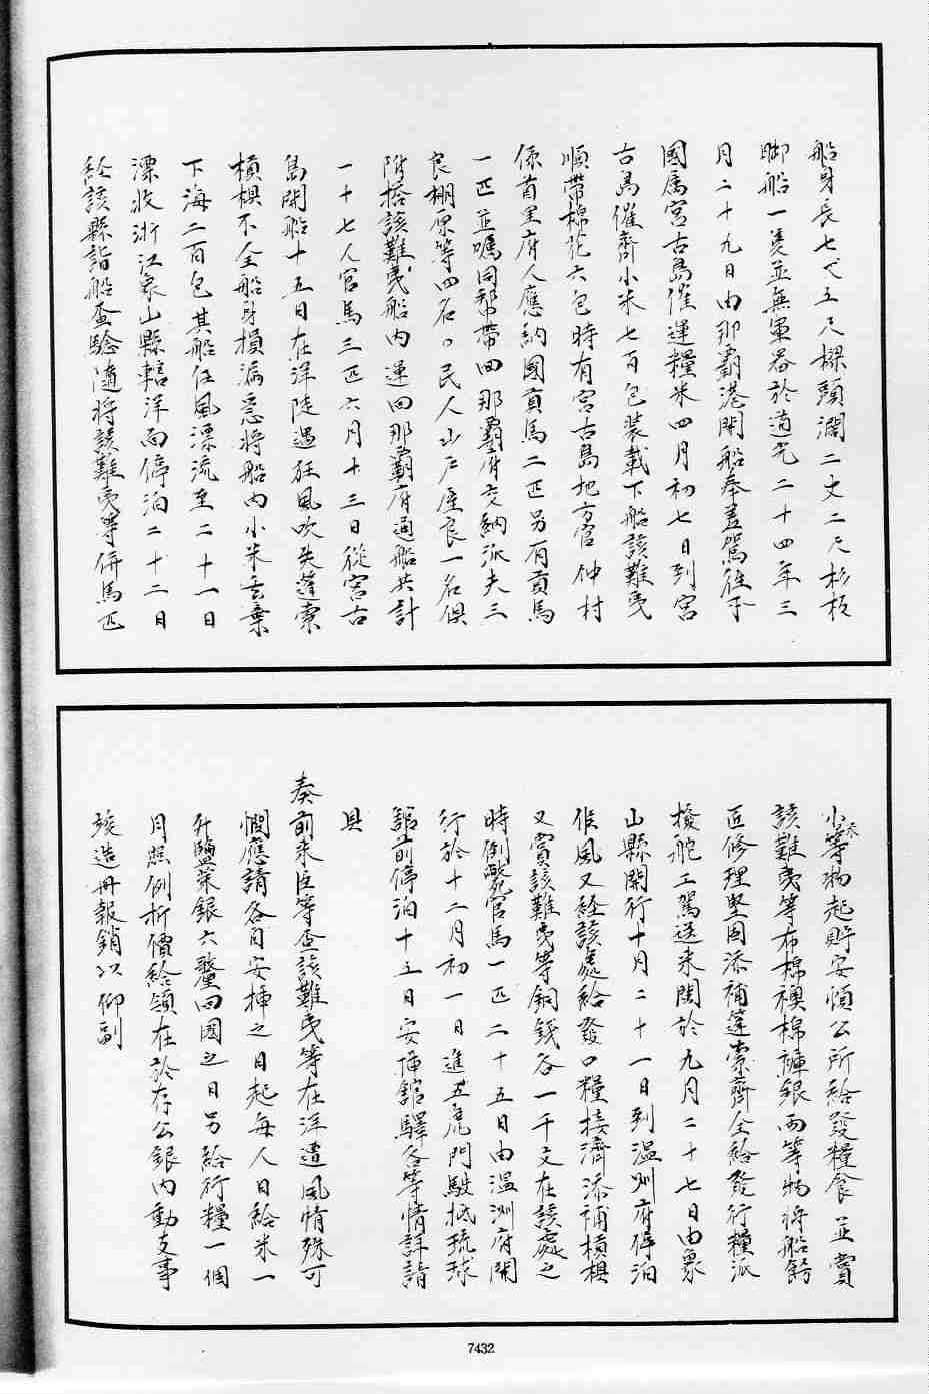 船身長七丈五尺樑頭濶二丈二尺杉板
脚船一隻並無軍器於道光二十四年三
月二十九日由那霸港開船奉差駕往本
國属宮古島催運糧米四月初七日到宮
古島催齊小米七百包裝載下船該難夷
順帶棉花六包時有宮古島地方官仲村
係首里府人應納國貢馬二匹另有貢馬
一匹並嘱同幫帶回那霸府交納派夫三
良棚原等四名。民人山戸屋良一名俱
附搭該難夷船內運回那霸府通船共計
一十七人官馬三匹六月十三日從宮古
島開船十五日在洋陡遇狂風吹失篷索
槓椇不全船身損漏急將船內小米丟棄
下海二百包其船任風漂流至二十一日
漂收浙江象山縣轄洋面停泊二十二日
經該縣詣船查驗隨將該難夷等併馬匹
小米等物起貯安頓公所給發糧食並賞
該難夷等布棉襖棉褲銀兩等物將船飭
匠修理堅固添補篷索齊全給發行糧派
撥舵工駕送来閩於九月二十七日由象
山縣開行十月二十一日到溫州府停泊
候風又経該處給發口糧接濟添補槓椇
又賞該難夷等銅錢各一千文在該處之
時倒斃官馬一匹二十五日由溫州府開
行於十二月初一日進五虎門駛抵琉球
舘前停泊十五日安挿舘驛各等情詳請
具
奏前来臣等查該難夷等在洋遭風情殊可
憫應請各自安挿之日起每人日給米一
升鹽菜銀六釐回國之日另給行糧一個
月照例折價給領在於存公銀內動支事
竣造冊報銷以仰副
7432